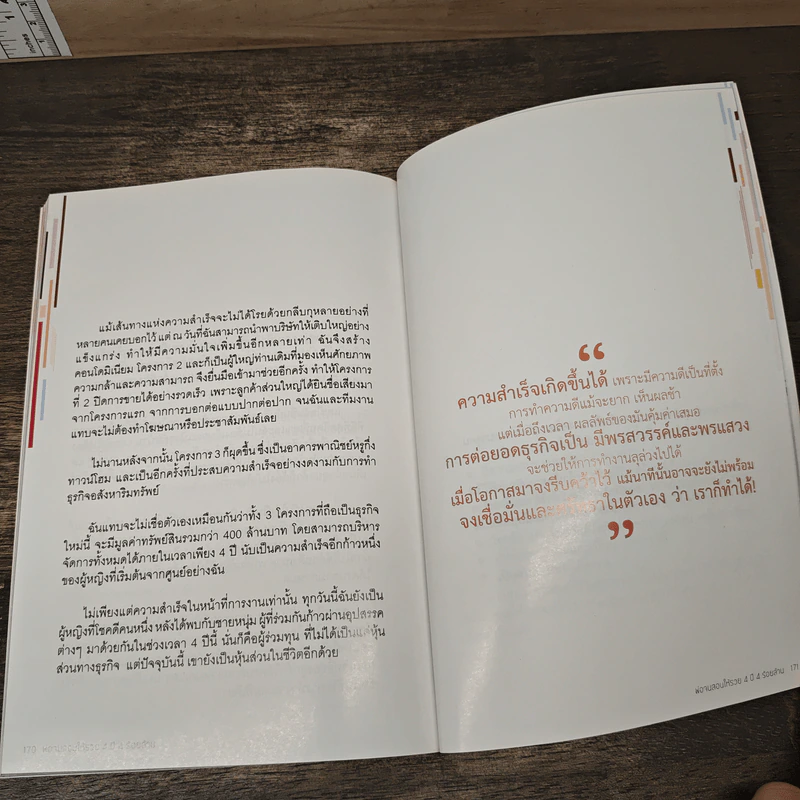 inches
แม้เส้นทางแห่งความสำเร็จจะไม่ได้โรยด้วยกลีบกุหลายอย่างที่
หลายคนเคยบอกไว้ แต่ ณ วันที่ฉันสามารถนำพาบริษัทให้เติบใหญ่อย่าง
แข็งแกร่ง ทำให้มีความมั่นใจเพิ่มขึ้นอีกหลายเท่า ฉันจึงสร้าง
คอนโดมิเนียม โครงการ 2 และก็เป็นผู้ใหญ่ท่านเดิมที่มองเห็นศักยภาพ
ความกล้าและความสามารถ จึงยื่นมือเข้ามาช่วยอีกครั้ง ทำให้โครงการ
ที่ 2 ปิดการขายได้อย่างรวดเร็ว เพราะลูกค้าส่วนใหญ่ได้ยินชื่อเสียงมา
จากโครงการแรก จากการบอกต่อแบบปากต่อปาก จนฉันและทีมงาน
แทบจะไม่ต้องทำโฆษณาหรือประชาสัมพันธ์เลย
ไม่นานหลังจากนั้น โครงการ 3 ก็ผุดขึ้น ซึ่งเป็นอาคารพาณิชย์หรูกึ่ง
ทาวน์โฮม และเป็นอีกครั้งที่ประสบความสำเร็จอย่างงดงามกับการทำ
ธุรกิจอสังหาริมทรัพย์
ฉันแทบจะไม่เชื่อตัวเองเหมือนกันว่าทั้ง 3 โครงการที่ถือเป็นธุรกิจ
ใหม่นี้ จะมีมูลค่าทรัพย์สินรวมกว่า 400 ล้านบาท โดยสามารถบริหาร
จัดการทั้งหมดได้ภายในเวลาเพียง 4 ปี นับเป็นความสำเร็จอีกก้าวหนึ่ง
ของผู้หญิงที่เริ่มต้นจากศูนย์อย่างฉัน
ไม่เพียงแต่ความสำเร็จในหน้าที่การงานเท่านั้น ทุกวันนี้ฉันยังเป็น
ผู้หญิงที่โชคดีคนหนึ่ง หลังได้พบกับชายหนุ่ม ผู้ที่ร่วมกันก้าวผ่านอุปสรรค
ต่างๆ มาด้วยกันในช่วงเวลา 4 ปีนี้ นั่นก็คือผู้ร่วมทุน ที่ไม่ได้เป็นแค่หุ้น
ส่วนทางธุรกิจ แต่ปัจจุบันนี้ เขายังเป็นหุ้นส่วนในชีวิตอีกด้วย
170 พ่อจนสอนให้รวย 4 ปี 4 ร้อยล้าน
“
ความสำเร็จเกิดขึ้นได้ เพราะมีความดีเป็นที่ตั้ง
การทำความดีแม้จะยาก เห็นผลช้า
แต่เมื่อถึงเวลา ผลลัพธ์ของมันคุ้มค่าเสมอ
การต่อยอดธุรกิจเป็น มีพรสวรรค์และพรแสวง
จะช่วยให้การทำงานลุล่วงไปได้
เมื่อโอกาสมาจงรีบคว้าไว้ แม้นาทีนั้นอาจจะยังไม่พร้อม
จงเชื่อมั่นและศรัทธาในตัวเอง ว่า เราก็ทำได้!
”
พ่อจนสอนให้รวย 4 ปี 4 ร้อยล้าน 171